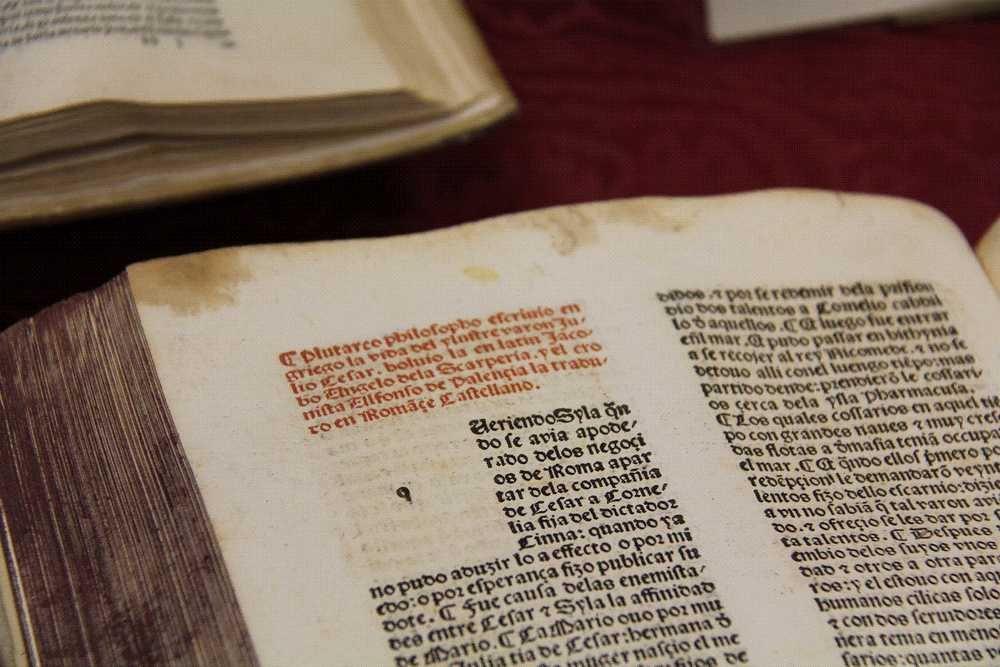 ¶ Plutarco philosopho escriuio en
griego la vida del ylustre varon Ju,
lio Cesar. boluio la en latin Jaco,
bo Angelo dela Scarperia. y el cro
nista Alfonso de Palençia la tradu,
ro en Romãçe Castellano.
q
Ueriendo Syla q̃n
do se avia apode,
rado delos negoçi
os de Roma apar
tar dela compañia
de Cesar a Corne,
lia fija del dictador
Cinna: quando ya
no pudo aduzir lo a effecto o por mi
edo: o por esperança fizo publicar su
dote. ¶ Fue causa delas enemista,
des entre Cesar ⁊ Syla la affinidad
de Mario. ¶ Ca Mario ouo por mu
Julia tia de Cesar: hermana
muger nasçio el me
fijos de
didos. ⁊ por se redemir dela prision
dio dos talentos a Cornelio cabdil
lo d̃ aquellos. ¶ E luego fue entrar
en el mar. E pudo passar en bithynia
a se recojer al rey Nicomede. ⁊ no se
detouo alli con el luengo tiẽpo: mas
partido dende: prendierõ le cossari
os çerca dela ysla Pharmacusa.
¶ Los quales cossarios en aquel
po con grandes naues ⁊ muy
das flotas a d̃masia teniã occupa
el mar. ¶ E q̃ndo ellos p̃mero
redẽpçion le demandarõ veyn
lentos fizo dello escarnio: dizi
a vn no sabiã q̃ tal varon
do. ⁊ ofreçio se les dar por
ta talentos. ¶ Despues
embio delos suyos vnos
dad ⁊ otros a otra par
ros: y el estouo con
humanos cilicas solo
⁊ con dos seruidores
ñera tenia en meno
sarios: quantas